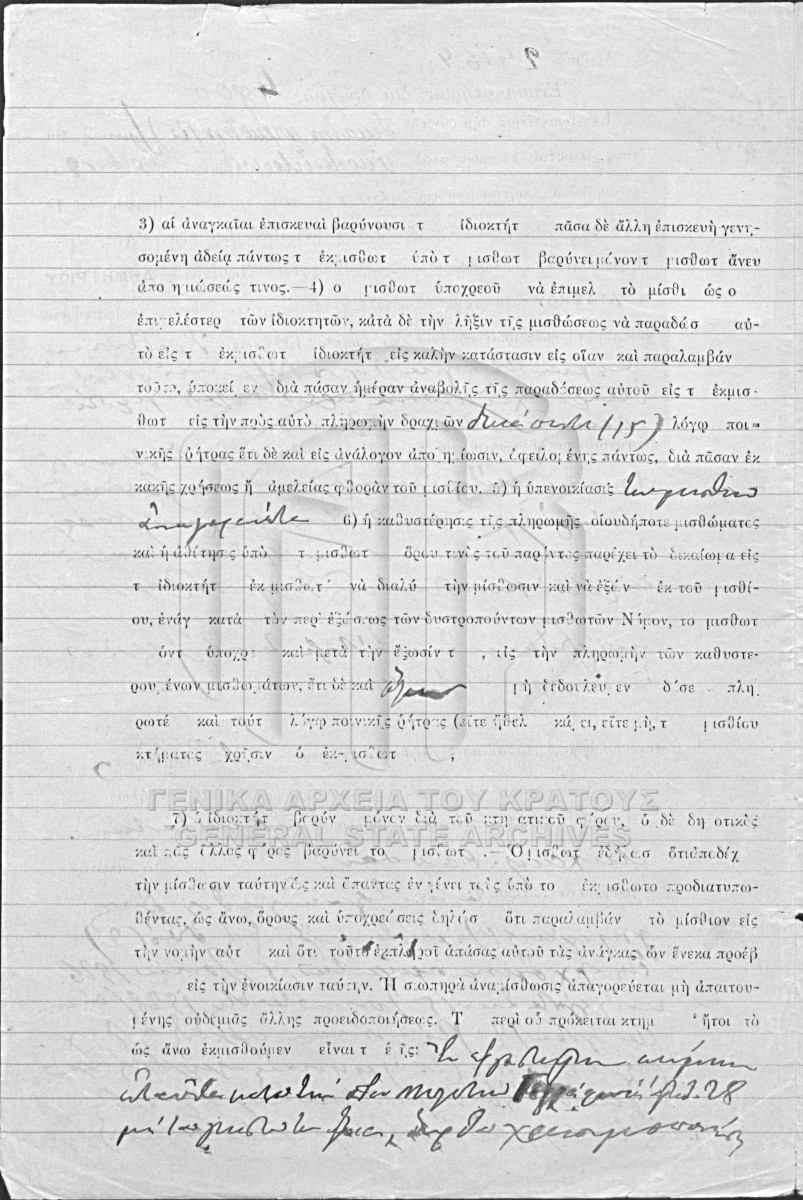 3) αἱ ἀναγκαῖαι ἐπισκευαὶ βαρύνουσι τ ἰδιοκτήτ πᾶσα δὲ ἄλλη ἐπισκευὴ γενη-
σομένη ἀδείᾳ πάντως τ ἐκμισθωτ ὑπὸ τ μισθωτ βαρύνει μόνον τ μισθωτ ἄνευ
ἀποζημιώσεώς τινος.—4) ο μισθωτ ὑποχρεοῦ νὰ ἐπιμελ τὸ μίσθι ὡς ο
ἐπιμελέστερ τῶν ἰδιοκτητῶν, κατὰ δὲ τὴν λῆξιν τῆς μισθώσεως νὰ παραδώσ αὐ-
τὸ εἰς τ ἐκμισθωτ ἰδιοκτήτ εἰς καλὴν κατάστασιν εἰς οἵαν καὶ παραλαμβάν
τοῦτο, ὑποκεί εν διὰ πᾶσαν ἡμέραν ἀναβολῆς τῆς παραδόσεως αὐτοῦ εἰς τ ἐκμισ-
θωτ εἰς τὴν πρὸς αὐτὸ πληρωμὴν δραχμῶν δεκάπεντε (15) λόγῳ ποι-
νικῆς ῥήτρας ἔτι δὲ καὶ εἰς ἀνάλογον ἀποζημίωσιν, ὀφειλομένης πάντως, διὰ πᾶσαν ἐκ
κακῆς χρήσεως ἢ ἀμελείας φθορὰν τοῦ μισθίου. 5) ἡ ὑπενοικίασις
ἀπαγορεύεται 6) ἡ καθυστέρησις τῆς πληρωμῆς οἱουδήποτε μισθώματος
καὶ ἡ ἀθέτησις ὑπὸ τ μισθωτ ὅρου τινὸς τοῦ παρόντος παρέχει τὸ δικαίωμα εἰς
τ ἰδιοκτήτ ἐκμισθωτ νὰ διαλύ τὴν μίσθωσιν καὶ νὰ ἐξών ἐκ τοῦ μισθί-
ου, ἐνάγ κατὰ τὸν περὶ ἐξώσεως τῶν δυστροπούντων μισθωτῶν Νόμον, το μισθωτ
όντ ὑποχρε καὶ μετὰ τὴν ἔξωσίν τ , εἰς τὴν πληρωμὴν τῶν καθυστε-
ρουμένων μισθωμάτων, ἔτι δὲ καὶ μὴ δεδουλευμεν δόσε πλη
ρωτέ καὶ τούτ λόγῳ ποινικῆς ῥήτρας (εἴτε ἤθελ κάμει, εἴτε μή, τ μισθίου
κτήματος χρῆσιν ὁ ἐκμισθωτ ,
ΓΕΝΙΚΑ ΑΡΧΕΙΑ ΤΟΥ ΚΡΑΤΟΥΣ
GENERAL STATE ARCHIVES
7) ὁ ἰδιοκτήτ βαρύν μόνον διὰ τοῦ κτηματικοῦ φόρου, ὁ δὲ δημοτικὸς
καὶ πᾶς ἄλλος φόρος βαρύνει το μισθωτ .— Ὁ μισθωτ ἐδήλωσ ὅτι ἀπεδέχ
τὴν μίσθωσιν ταύτην ὡς καὶ ἅπαντας ἐν γένει τοὺς ὑπὸ το ἐκμισθωτο προδιατυπω-
θέντας, ὡς ἄνω, ὅρους καὶ ὑποχρεώσεις δηλώσ ὅτι παραλαμβάν τὸ μίσθιον εἰς
τὴν νομὴν αὑτ καὶ ὅτι τοῦτο ἐκπληροῖ ἁπάσας αὐτοῦ τὰς ἀνάγκας ὧν ἕνεκα προέβ
εἰς τὴν ἐνοικίασιν ταύτην. Ἡ σιωπηρὰ ἀναμίσθωσις ἀπαγορεύεται μὴ ἀπαιτου-
μένης οὐδεμιᾶς ἄλλης προειδοποιήσεως. Τ περὶ οὗ πρόκειται κτημ ἤτοι τὸ
ὡς ἄνω ἐκμισθούμεν εἶναι τ ἑξῆς:
28